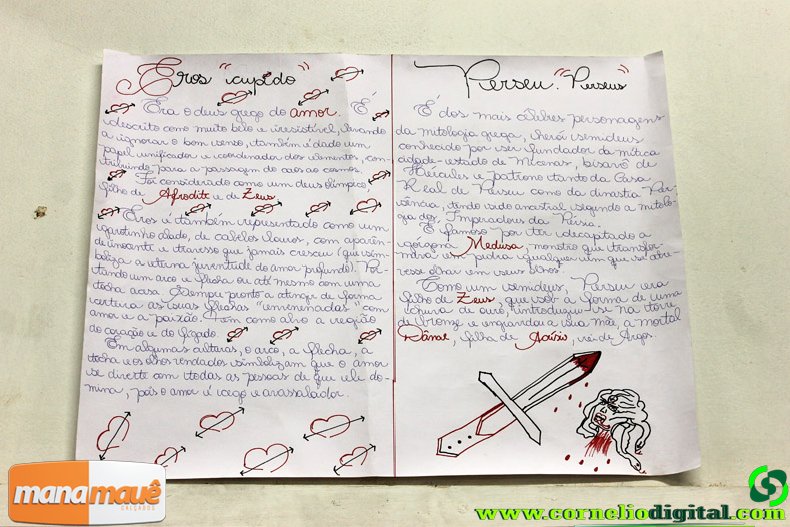 Eros "cupido"
Era o deus grego do amor. É
descrito como muito belo e irresistível, levando
a ignorar o bom senso, também é dado um
papel unificador e coordenador dos elementos, con-
tribuindo para a passagem do caos ao cosmos.
Foi considerado como um deus olímpico,
filho de Afrodite e de Zeus.
Eros é também representado como um
garotinho alado, de cabelos louros, com aparên-
de inocente e travesso que jamais cresceu (que sim-
boliza a eterna juventude do amor profundo). Por-
tando um arco e flecha ou até mesmo com uma
tocha acesa. Sempre pronto a atingir de forma
certeira as suas flechas "envenenadas" com
amor e a paixão. Tem como alvo a região
do coração e do fígado.
Em algumas culturas, o arco, a flecha, a
tocha e os olhos vendados simbolizam que o amor
se diverte com todas as pessoas de que ele do-
mina, pois o amor é cego e avassalador.
Perseu "Perseus"
É dos mais célebres personagens
da mitologia grega, herói semideus
conhecido por ser fundador da mítica
cidade-estado de Micenas, bisavô de
Hércules e patrono tanto da Casa
Real de Perseu como da dinastia Per-
sendo ancestral segundo a mitolo-
gia dos Imperadores da Pérsia.
É famoso por ter decapitado a
górgona Medusa, monstro que transfor-
mava em pedra qualquer um que se atre-
vesse olhar em seus olhos!
Como um semideus, Perseu era
filho de Zeus, que sob a forma de uma
chuva de ouro, introduziu-se na torre
de bronze e engravidou a sua mãe, a mortal
Dânae, filha de Acrísio, rei de Argos.
manamauê
CALÇADOS
www.corneliodigital.com